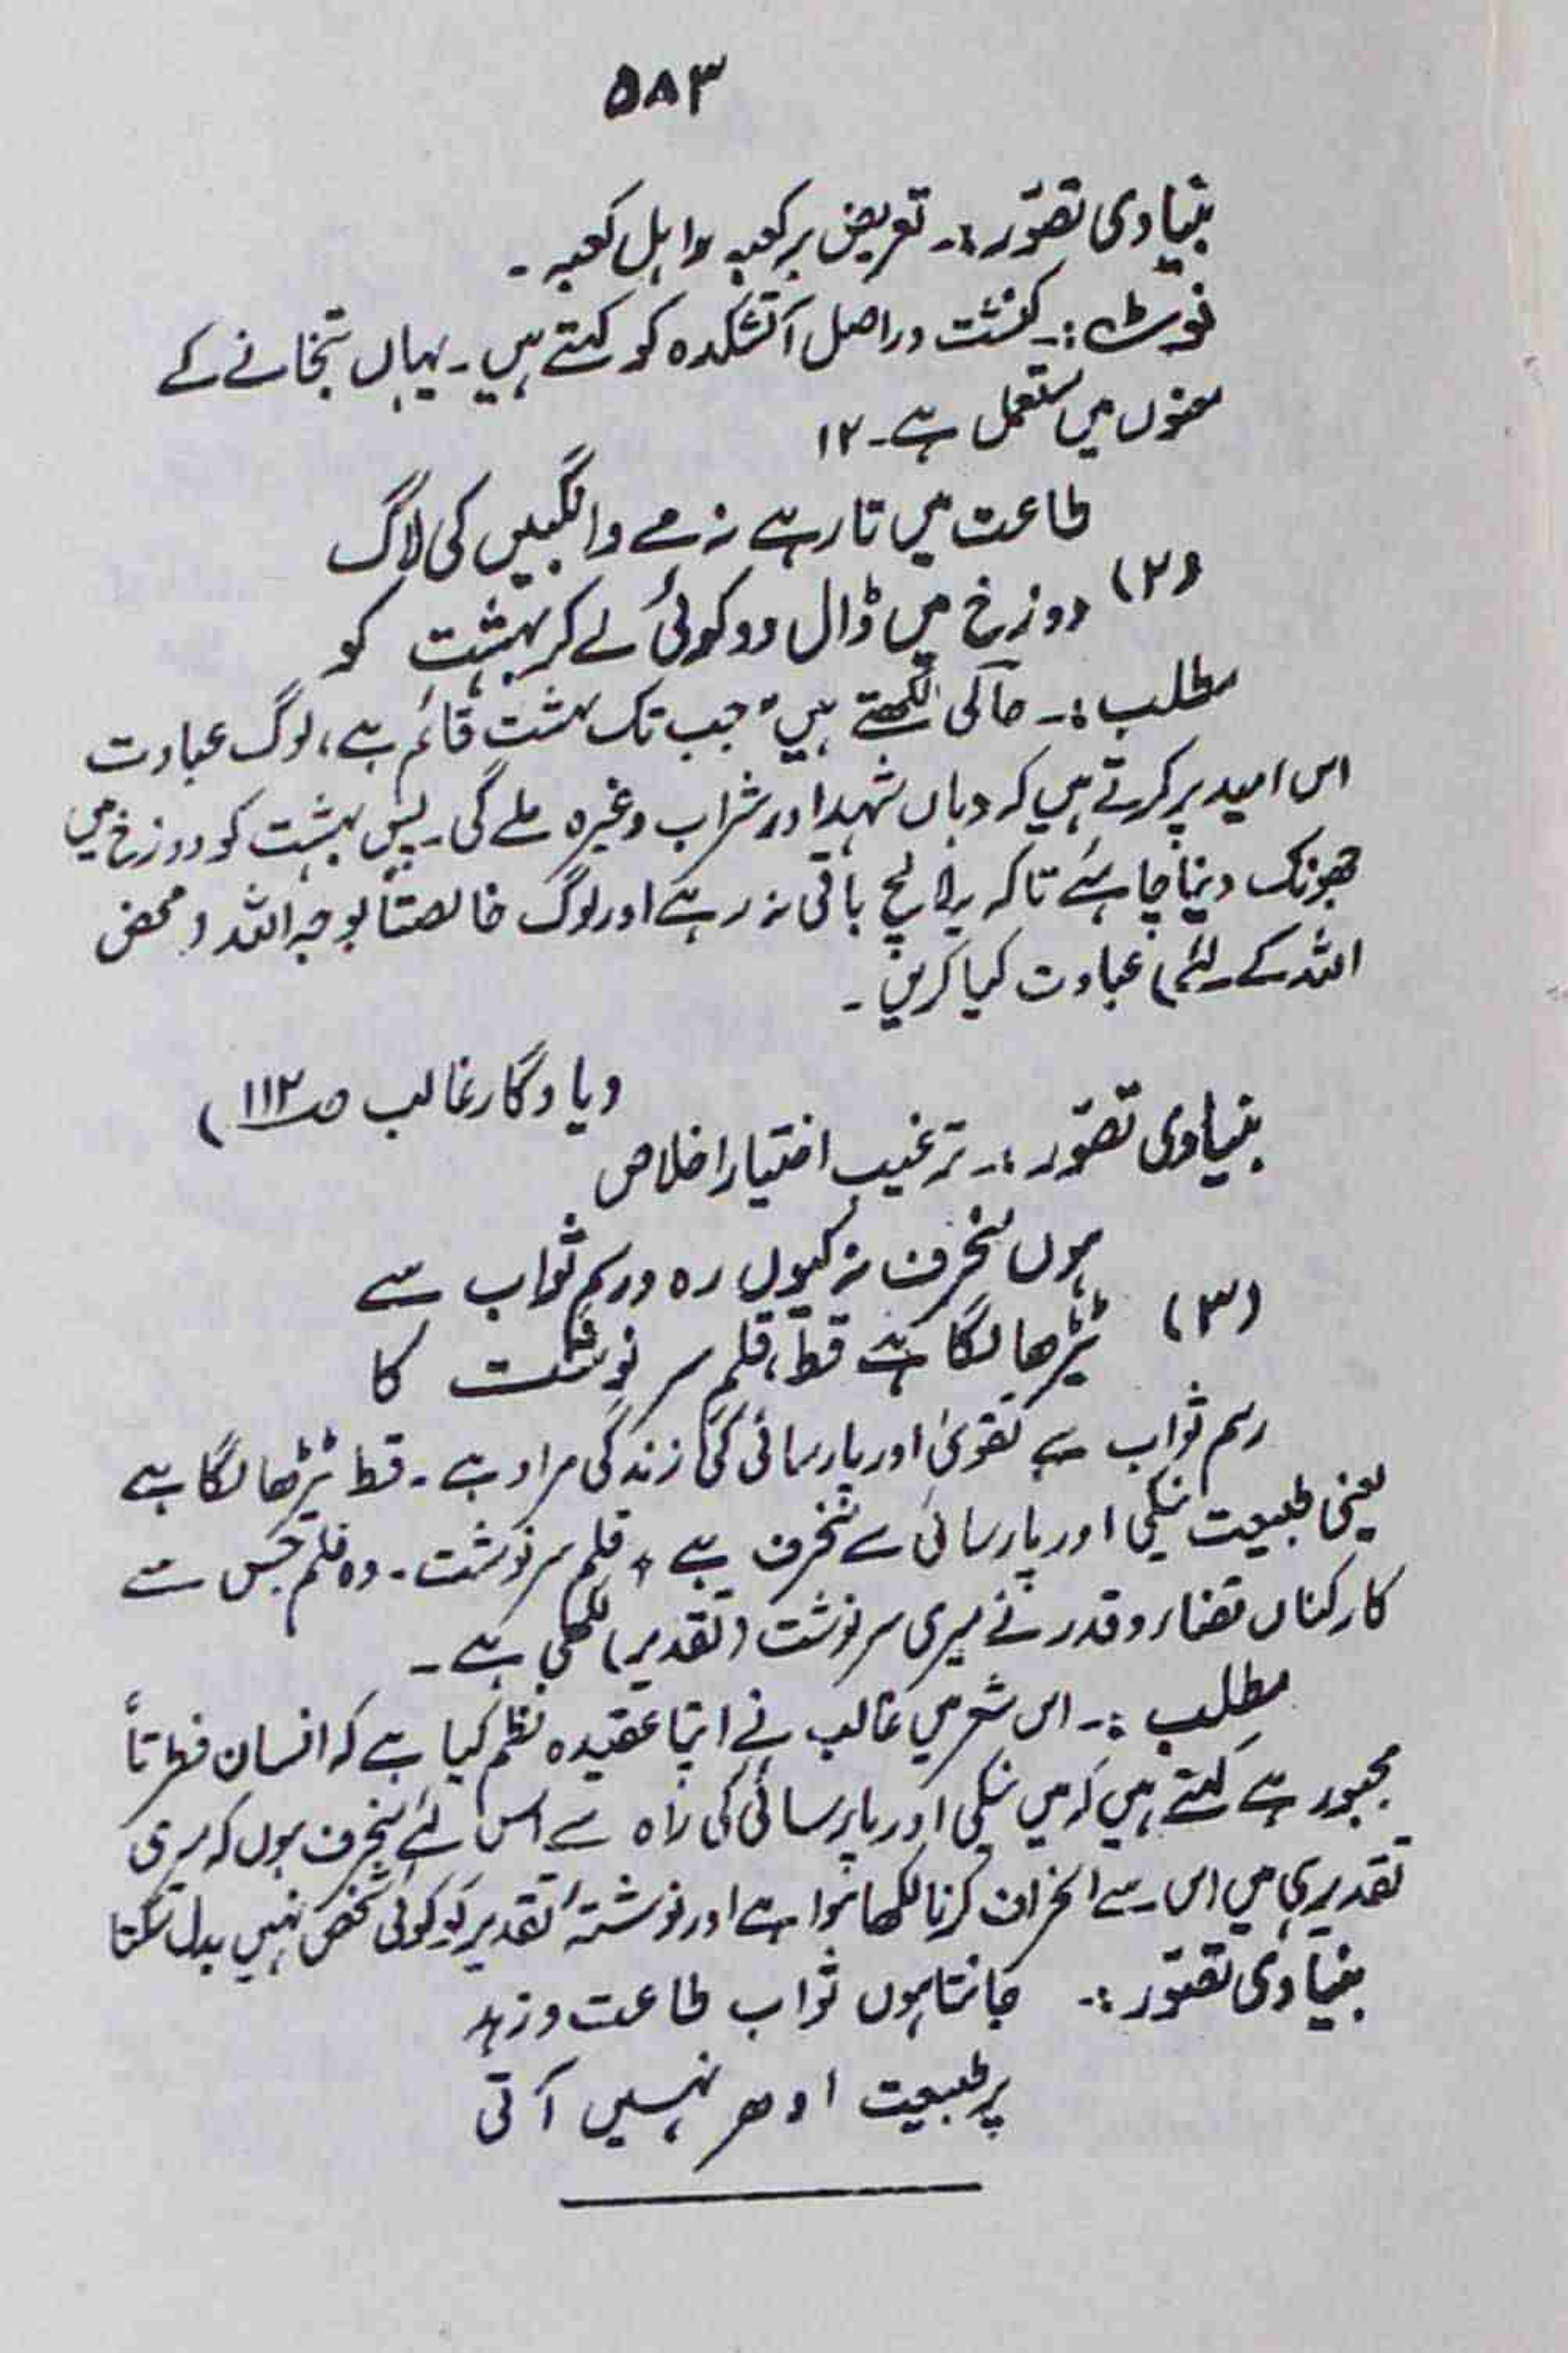 ۵۸۳
بنیادی تصوّر:۔ تعریض بر کعبہ و اہل کعبہ۔
نوٹ:۔ کنشت دراصل آتشکدہ کو کہتے ہیں۔ یہاں بتخانے کے
معنوں میں مستعمل ہے۔ ۱۲
طاعت میں تا رہے نہ مے و انگبیں کی لاگ
(۲) دوزخ میں ڈال دو کوئی لے کر بہشت کو
مطلب:۔ حالی لکھتے ہیں "جب تک بہشت قائم ہے، لوگ عبادت
اس امید پر کرتے ہیں کہ وہاں شہد اور شراب وغیرہ ملے گی۔ پس بہشت کو دوزخ میں
جھونک دینا چاہئے تاکہ یہ لالچ باقی نہ رہے اور لوگ خالصتاً لوجہ اللہ (محض
اللہ کے لئے) عبادت کیا کریں۔
(یادگار غالب صـ۱۱۲)
بنیادی تصوّر:۔ ترغیب اختیار اخلاص
ہوں منحرف نہ کیوں رہ و رسمِ ثواب سے
(۳) ٹیڑھا لگا ہے قط، قلمِ سرنوشت کا
رسم ثواب سے تقویٰ اور پارسائی کی زندگی مراد ہے۔ قط ٹیڑھا لگا ہے
یعنی طبیعت نیکی اور پارسائی سے منحرف ہے ٭ قلم سرنوشت۔ وہ قلم جس سے
کارکنان قضاء و قدر نے میری سرنوشت (تقدیر) لکھی ہے۔
مطلب:۔ اس شعر میں غالب نے اپنا عقیدہ نظم کیا ہے کہ انسان فطرتاً
مجبور ہے کہتے ہیں کہ میں نیکی اور پارسائی کی راہ سے اس لئے منحرف ہوں کہ میری
تقدیر ہی میں اس سے انحراف کرنا لکھا ہوا ہے اور نوشتۂ تقدیر کو کوئی شخص نہیں بدل سکتا
بنیادی تصوّر:۔ جانتا ہوں ثواب طاعت و زہد
پر طبیعت ادھر نہیں آتی